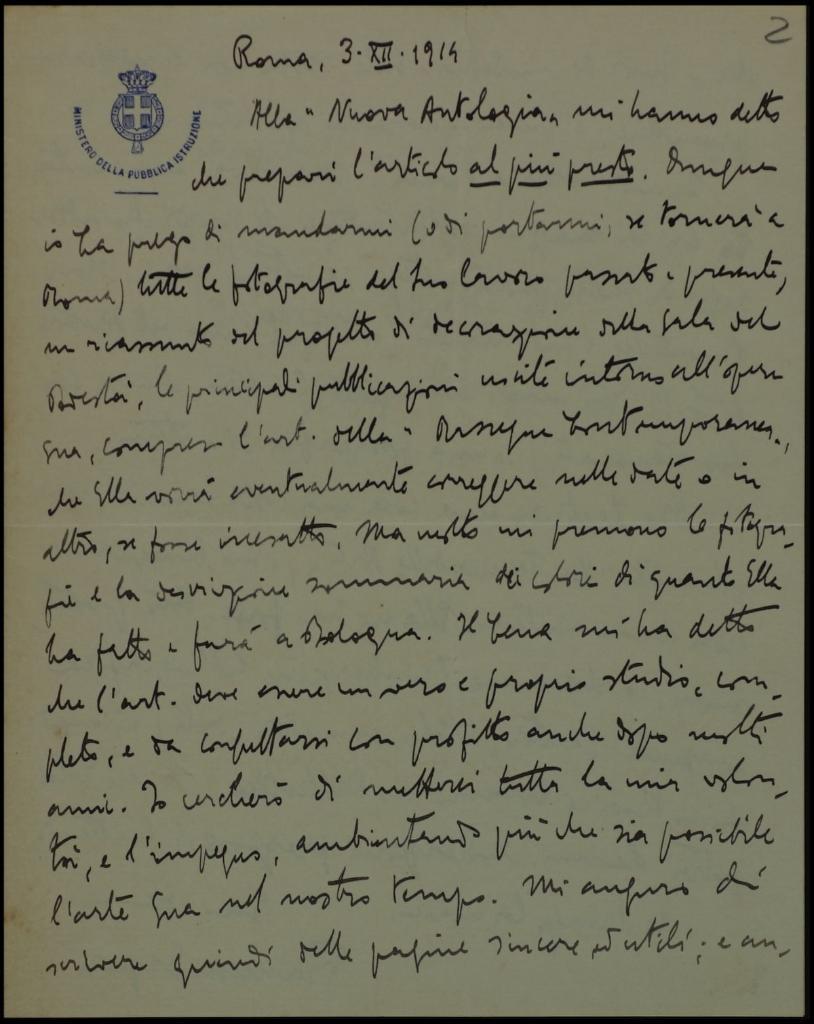 2
Roma, 3 · XII · 1914
MINISTERO DELLA PUBBLICA ISTRUZIONE
Alla "Nuova Antologia" mi hanno detto
che prepari l'articolo al più presto. Dunque
io La prego di mandarmi (o di portarmi, se tornerà a
Roma) tutte le fotografie del Suo lavoro passato e presente,
un riassunto del progetto di decorazione della Sala del
Podestà, le principali pubblicazioni uscite intorno all'opera
Sua, compreso l'art. della "Rassegna Contemporanea",
che Ella vorrà eventualmente correggere nelle date o in
altro, se fosse inesatto. Ma molto mi premono le fotogra-
fie e la descrizione sommaria dei colori di quanto Ella
ha fatto e farà a Bologna. Il Cena mi ha detto
che l'art. deve essere un vero e proprio studio, com-
pleto, e da consultarsi con profitto anche dopo molti
anni. Io cercherò di metterci tutta la mia volon-
tà, e l'impegno, ambientando più che sia possibile
l'arte Sua nel nostro tempo. Mi auguro di
scrivere quindi delle pagine sincere ed utili; e an-